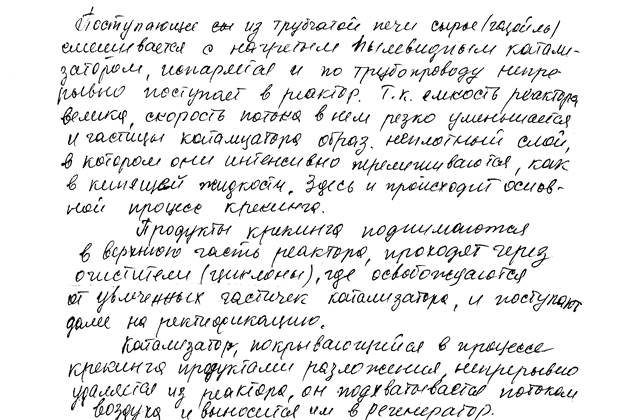 Поступающее из трубчатой печи сырье (газойль)
смешивается с нагретым пылевидным катали-
затором, испаряется и по трубопроводу непре-
рывно поступает в реактор. Т.к. емкость реактора
велика, скорость потока в нем резко уменьшается
и частицы катализатора образ. неплотный слой,
в котором они интенсивно перемешиваются, как
в кипящей жидкости. Здесь и происходит основ-
ной процесс крекинга.
Продукты крекинга поднимаются
в верхнюю часть реактора, проходят через
очистители (циклоны), где освобождаются
от увлеченных частичек катализатора, и поступают
далее на ректификацию.
Катализатор, покрывающийся в процессе
крекинга продуктами разложения, непрерывно
удаляется из реактора, он подхватывается потоком
воздуха и выносится им в регенератор.